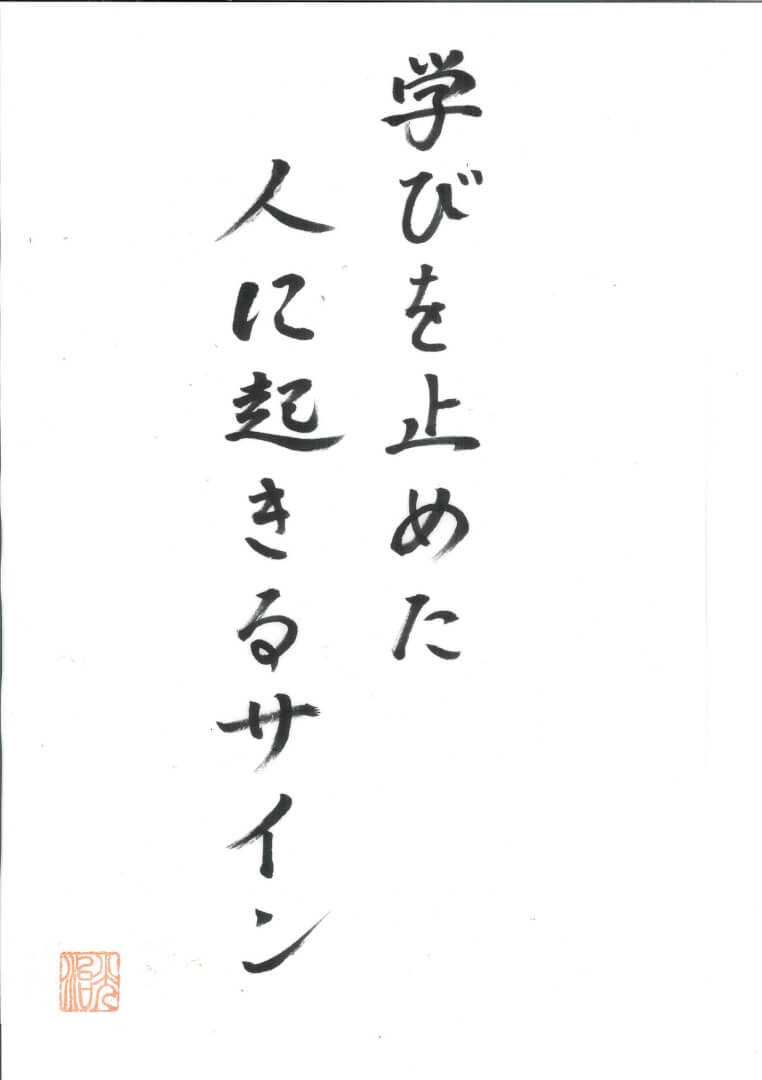 学びを止めた
人に起きるサイン